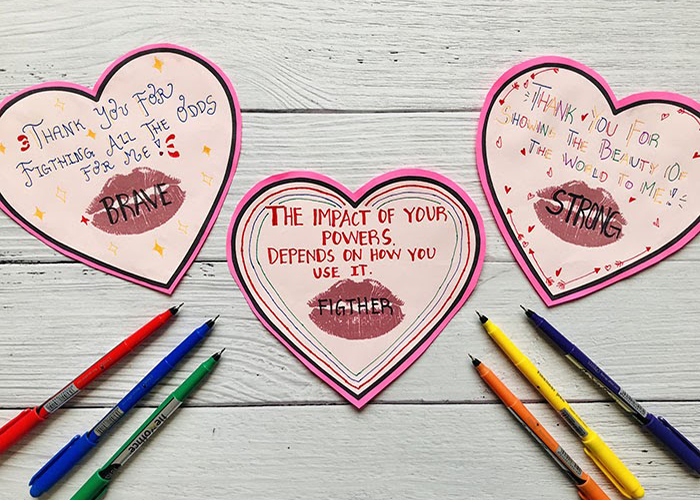 THANK YOU FOR
FIGTHING ALL THE ODDS
FOR ME!
BRAVE
THE IMPACT OF YOUR
POWERS.
DEPENDS ON HOW YOU
USE IT.
FIGTHER
THANK YOU FOR
SHOWING THE BEAUTY OF
THE WORLD TO ME!
STRONG